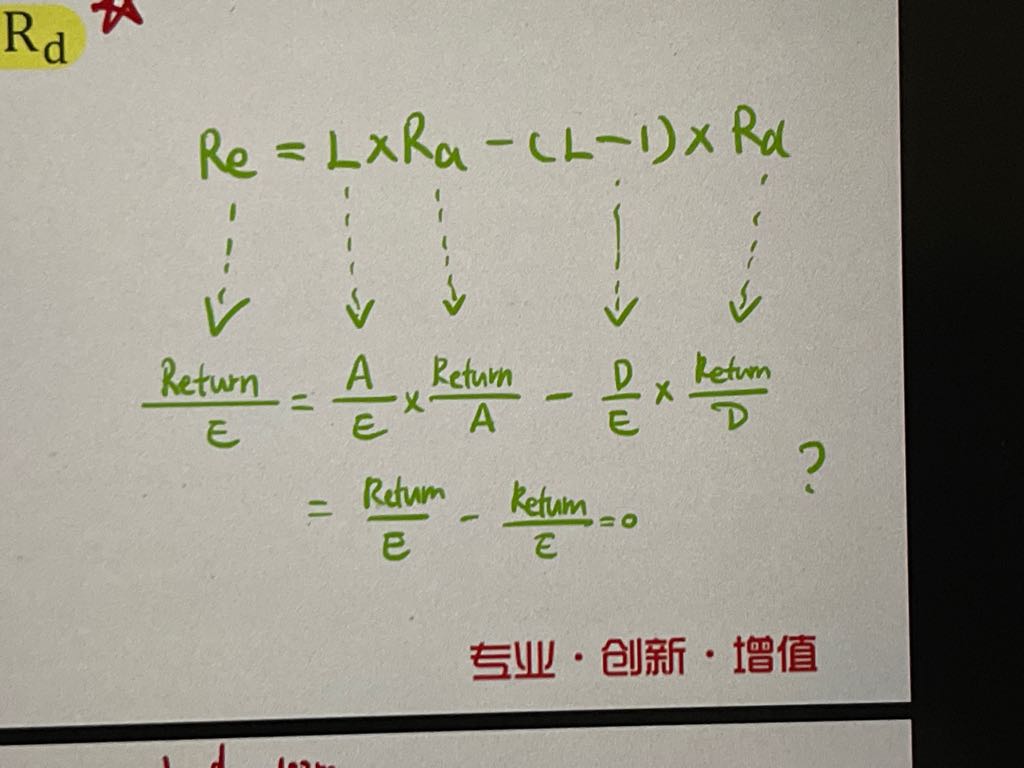 Rd
Re = L×Ra - (L-1)× Rd
Return/E = A/E × Return/A - D/E × Return/D
= Return/E - Return/E = 0 ?
专业·创新·增值